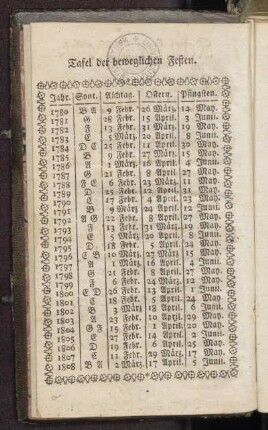 Tafel der beweglichen Festen.
Jahr. Sont. Aschtag. Ostern. Pfingsten.
1780 B A 9 Febr. 26 März. 14 May.
1781 G 28 Febr. 15 April. 3 Junii.
1782 F 13 Febr. 31 März. 19 May.
1783 E 5 März. 20 April. 8 Junii.
1784 D C 25 Febr. 11 April. 30 May.
1785 B 9 Febr. 27 März. 15 May.
1786 A 1 März. 16 April. 4 Junii.
1787 G 21 Febr. 8 April. 27 May.
1788 F E 6 Febr. 23 März. 11 May.
1789 D 25 Febr. 12 April. 31 May.
1790 C 17 Febr. 4 April. 23 May.
1791 B 9 März. 24 April. 12 Junii.
1792 A G 22 Febr. 8 April. 27 May.
1793 F 13 Febr. 31 März. 19 May.
1794 E 5 März. 20 April. 8 Junii.
1795 D 18 Febr. 5 April. 24 May.
1796 C B 10 Febr. 27 März. 15 May.
1797 A 1 März. 16 April. 4 Junii.
1798 G 21 Febr. 8 April. 27 May.
1799 F 6 Febr. 24 März. 12 May.
1800 E D 26 Febr. 13 April. 1 Junii.
1801 C 18 Febr. 5 April. 24 May.
1802 B 3 März. 18 April. 6 Junii.
1803 A 23 Febr. 10 April. 29 May.
1804 G F 15 Febr. 1 April. 20 May.
1805 E
1806 D 19 Febr. 6 April.
1807 C 11 Febr. 29 März. 17 May.
1808 B A 2 März. 17 April. 5 Junii.